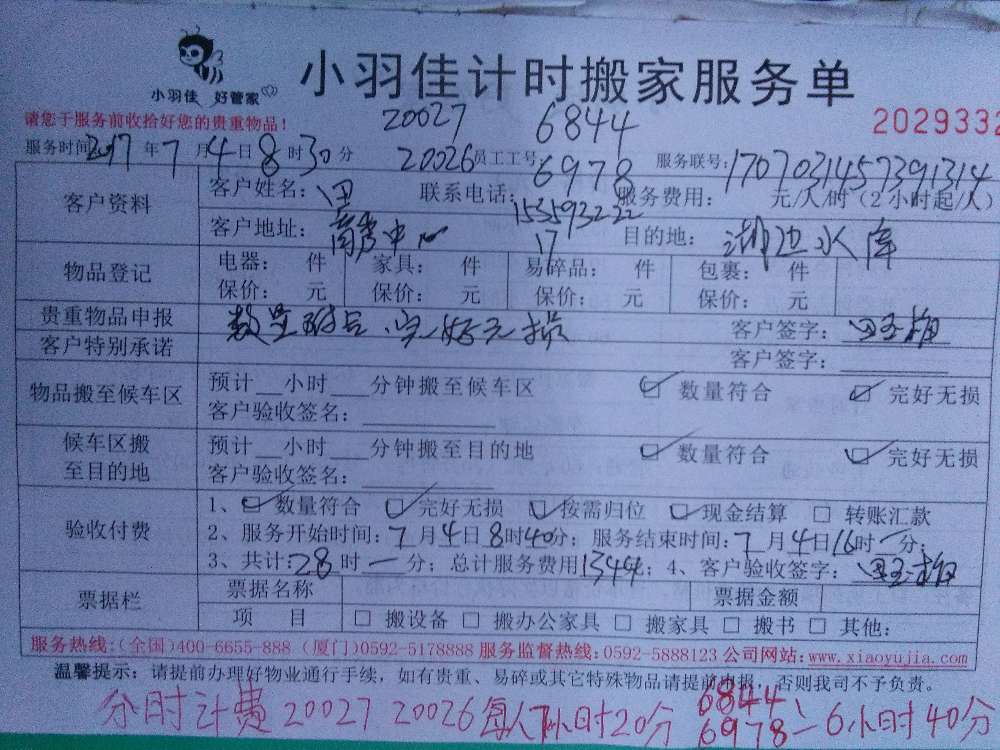 小羽佳 好管家
小羽佳计时搬家服务单
请您于服务前收拾好您的贵重物品!
20027 6844
2029332
服务时间2017年7月4日8时30分 20026 员工工号:6978 服务联号:1707031457391314
客户资料 客户姓名:田 联系电话: 服务费用: 元/人/时(2小时起/人)
客户地址: 中心 目的地:湖边水库
17
物品登记 电器: 件 家具: 件 易碎品: 件 包裹: 件
保价: 元 保价: 元 保价: 元 保价: 元
贵重物品申报 数量符合、完好无损 客户签字:
客户特别承诺 客户签字:
物品搬至候车区 预计__小时___分钟搬至候车区 ☑ 数量符合 ☑ 完好无损
客户验收签名:
候车区搬至目的地 预计__小时___分钟搬至目的地 ☑ 数量符合 ☑ 完好无损
客户验收签名:
验收付费 1、☑数量符合 ☑完好无损 ☑按需归位 ☑现金结算 □ 转账汇款
2、服务开始时间:7月4日8时40分;服务结束时间:7月4日16时一分;
3、共计:28时一分;总计服务费用1344;4、客户验收签字:
票据栏 票据名称 票据金额
项 目 □ 搬设备 □ 搬办公家具 □ 搬家具 □ 搬书 □ 其他:
服务热线:(全国)400-6655-888 (厦门)0592-5178888 服务监督热线:0592-5888123 公司网站:www.xiaoyujia.com
温馨提示:请提前办理好物业通行手续,如有贵重、易碎或其它特殊物品请提前申报,否则我司不予负责。
分时计费 20027 20026每人7小时20分 6844、
6978=6小时40分